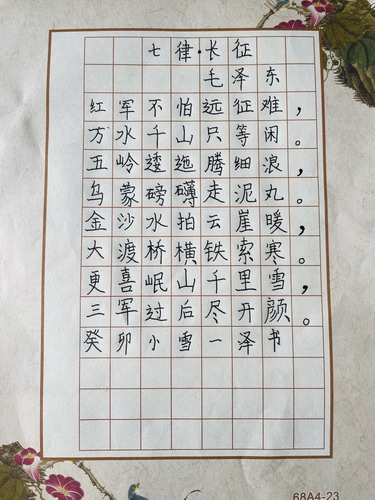 七律·长征
毛泽东
红军不怕远征难，
方水千山只等闲。
五岭逶迤腾细浪，
乌蒙磅礴走泥丸。
金沙水拍云崖暖，
大渡桥横铁索寒。
更喜岷山千里雪，
三军过后尽开颜。
癸卯小雪一泽书
68A4-23